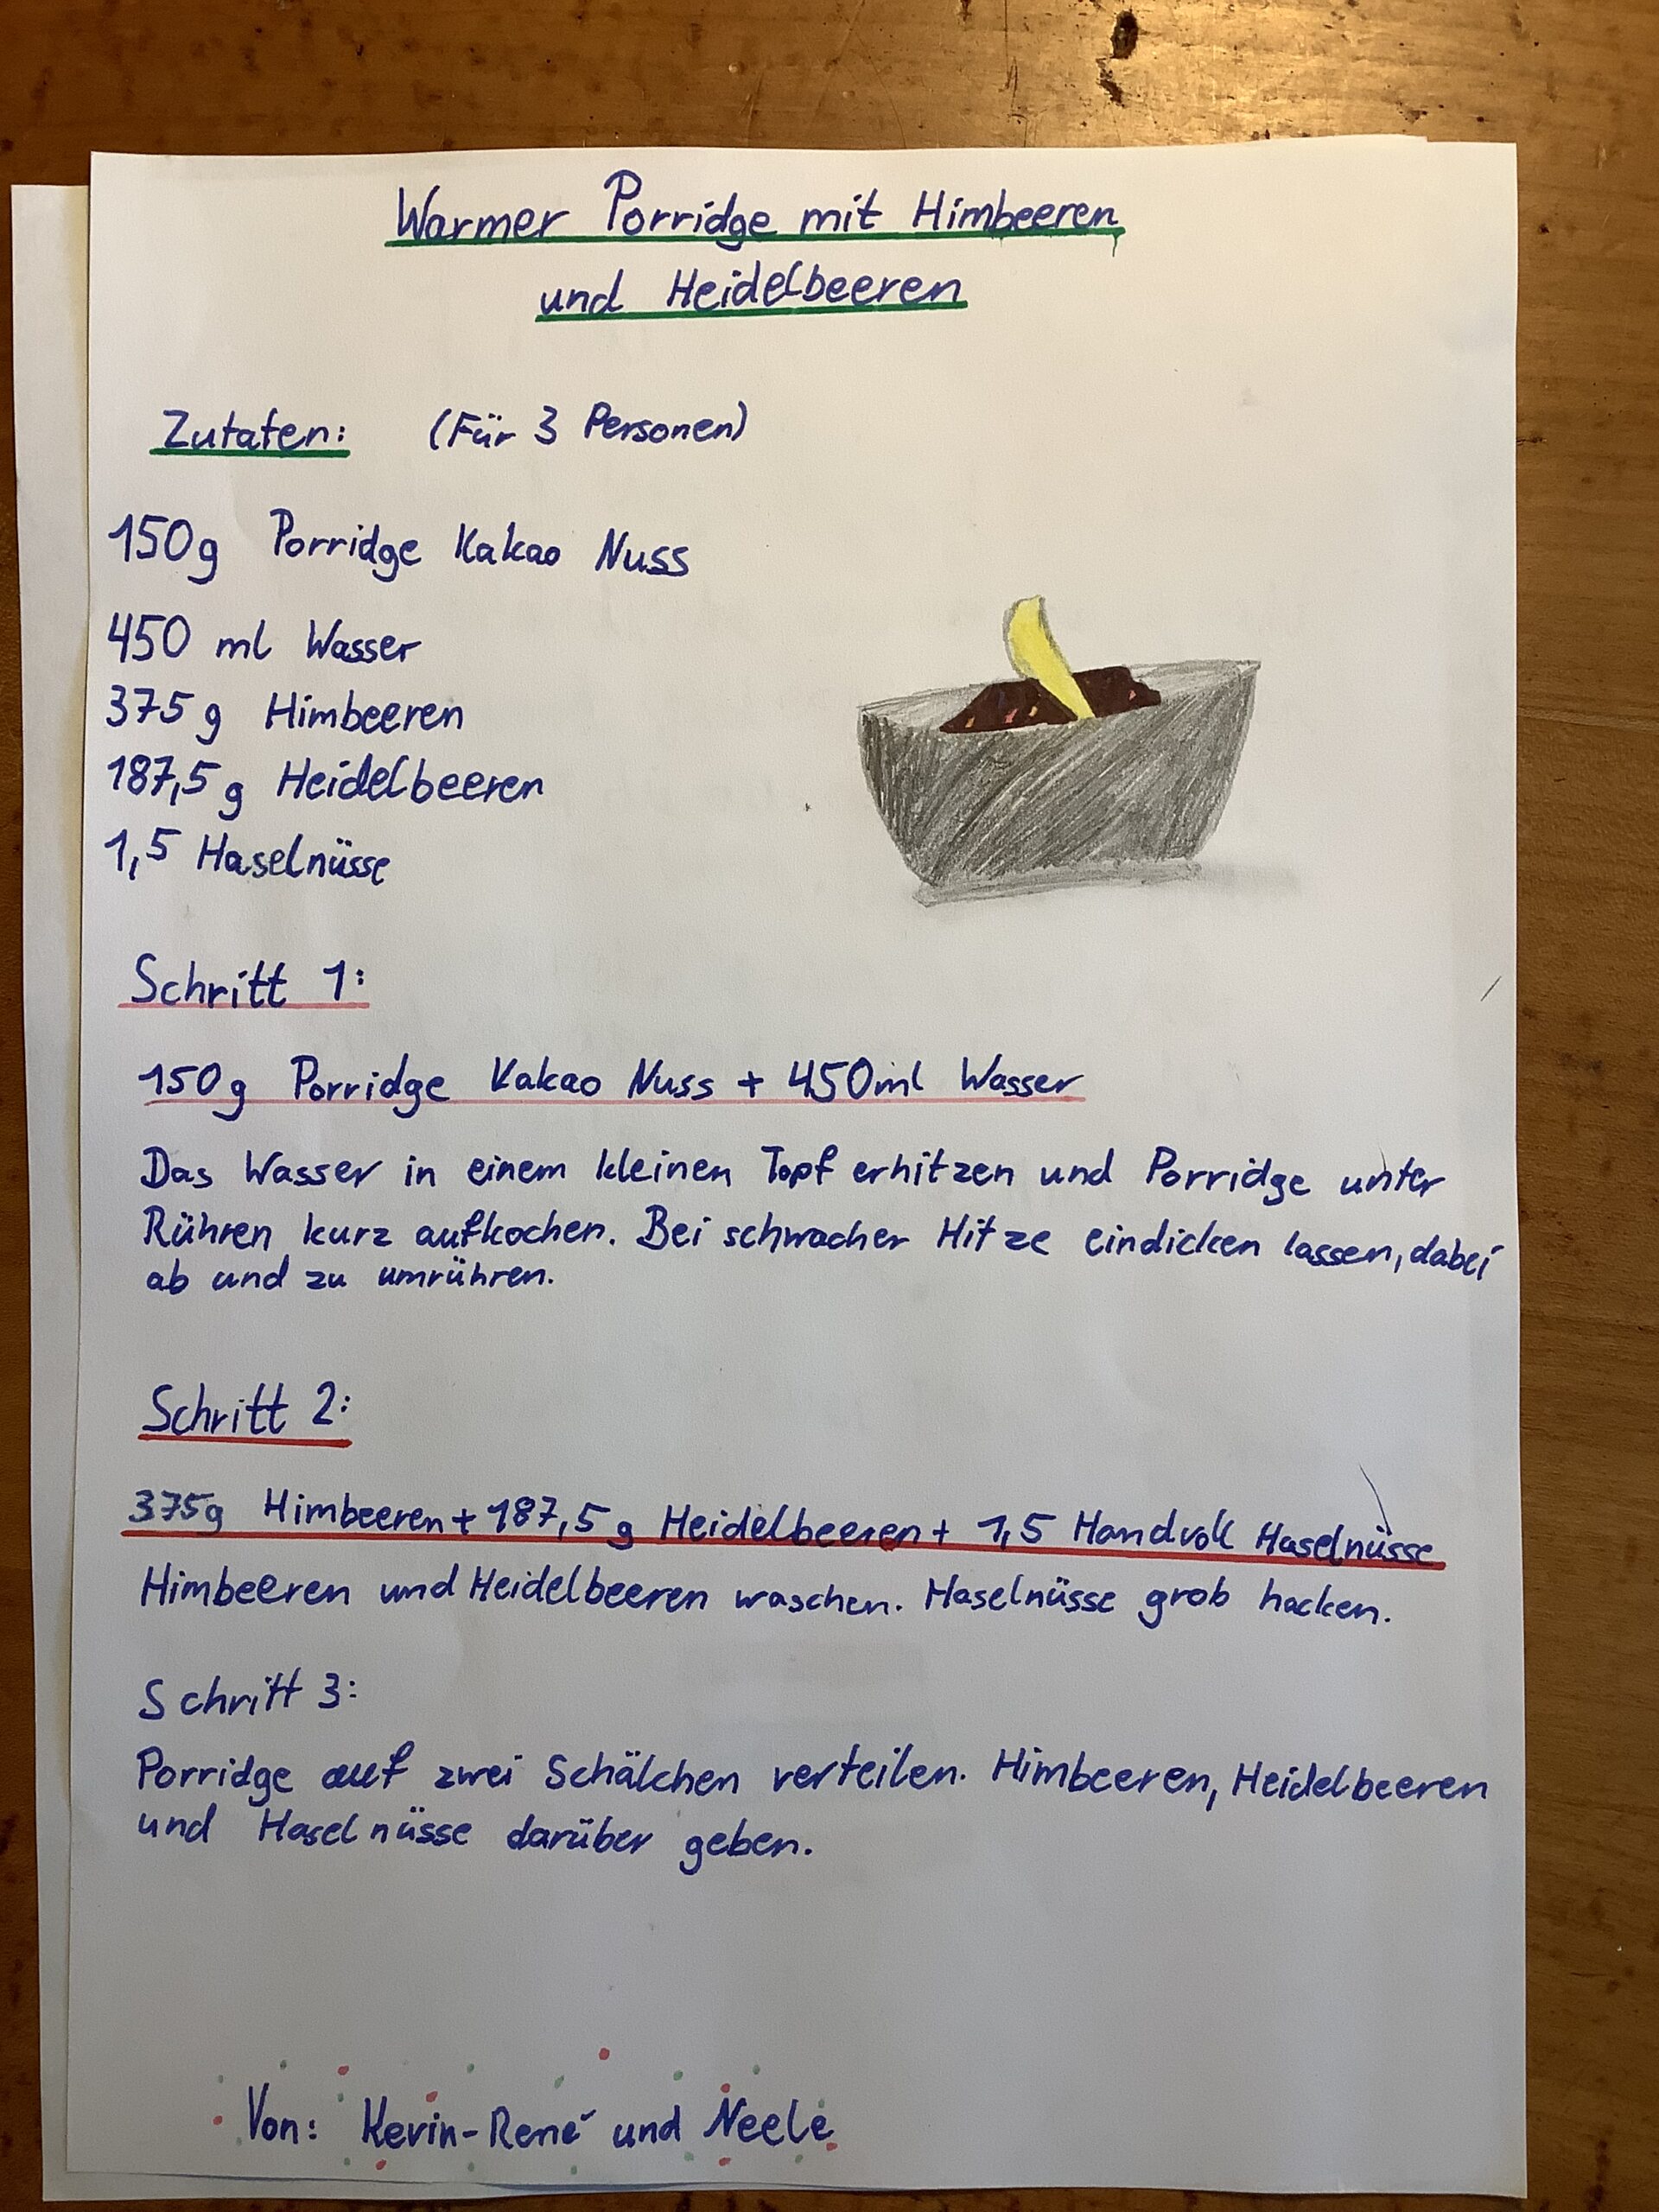 Warmer Porridge mit Himbeeren
und Heidelbeeren
Zutaten: (Für 3 Personen)
150g Porridge Kakao Nuss
450 ml Wasser
375g Himbeeren
187,5g Heidelbeeren
1,5 Haselnüsse
Schritt 1:
150g Porridge Kakao Nuss + 450ml Wasser
Das Wasser in einem kleinen Topf erhitzen und Porridge unter
Rühren kurz aufkochen. Bei schwacher Hitze eindicken lassen, dabei
ab und zu umrühren.
Schritt 2:
375g Himbeeren + 187,5g Heidelbeeren + 1,5 Handvoll Haselnüsse
Himbeeren und Heidelbeeren waschen. Haselnüsse grob hacken.
Schritt 3:
Porridge auf zwei Schälchen verteilen. Himbeeren, Heidelbeeren
und Haselnüsse darüber geben.
Von: Kevin-René und Neele